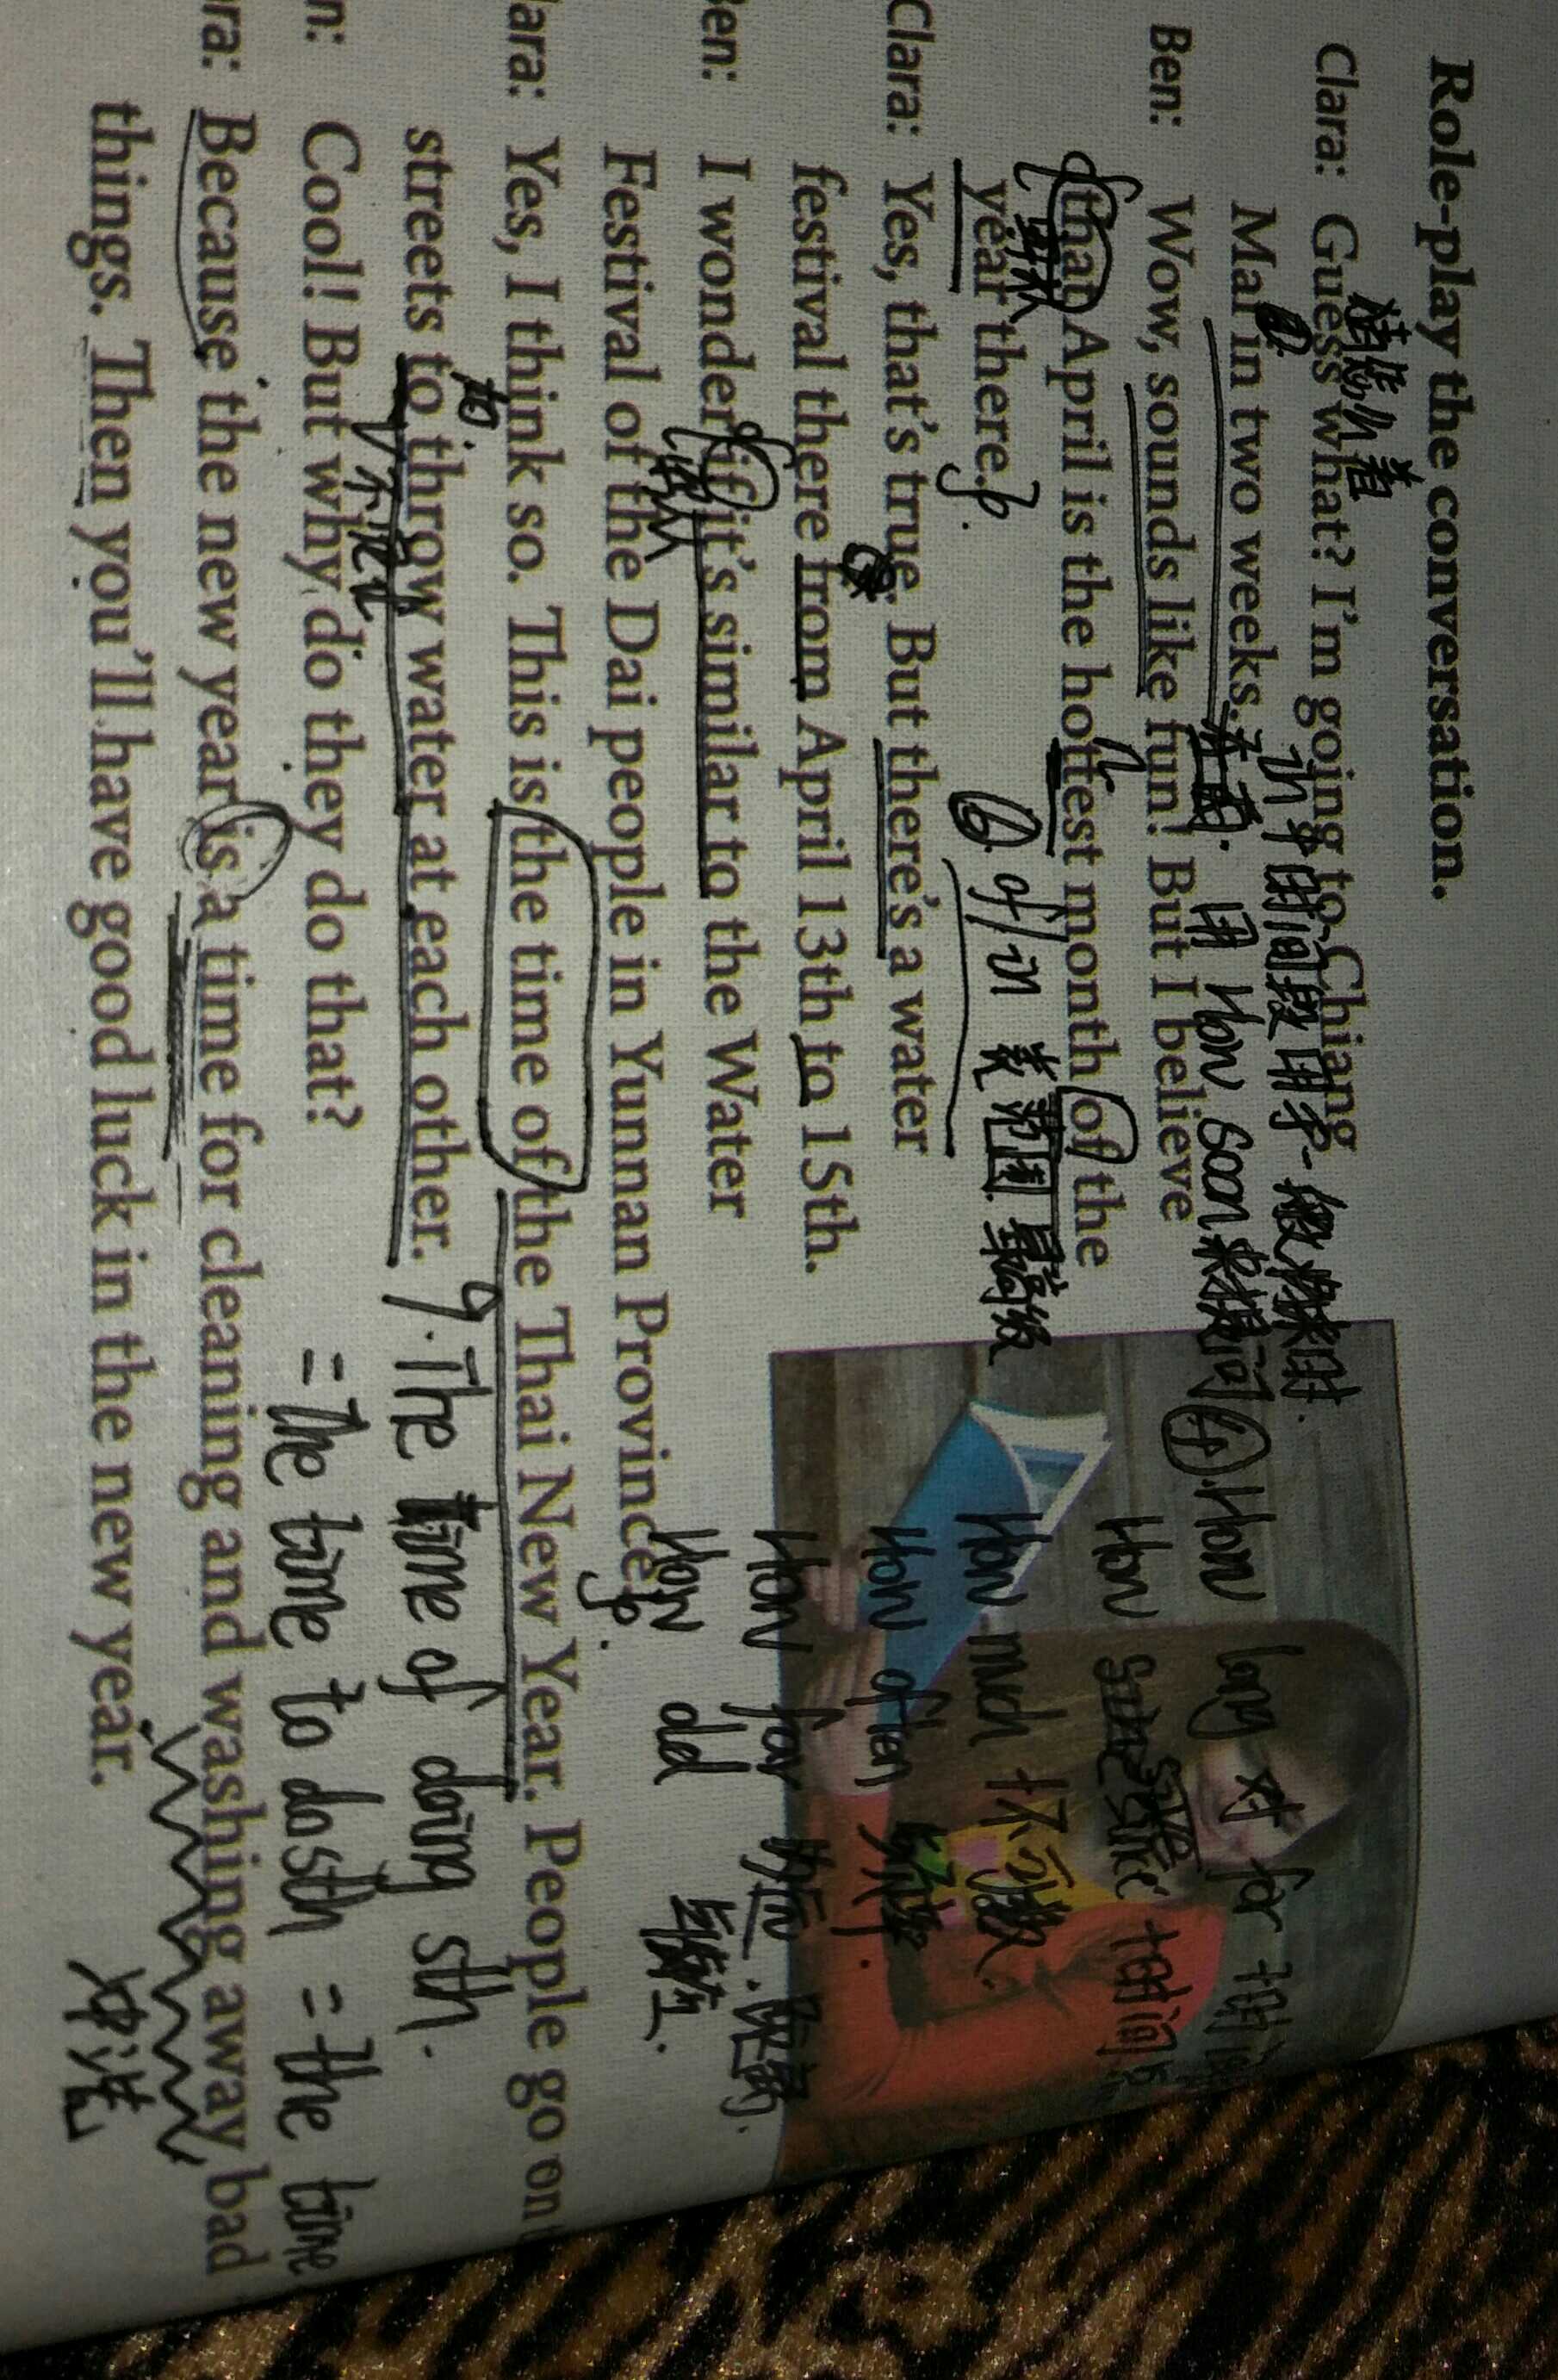 Role-play the conversation.
猜猜看
Clara: Guess what? I'm going to Chiang
Mai in two weeks.
in + 时间段 用于一般将来时.
用 How soon 来提问
Ben: Wow, sounds like fun! But I believe
that April is the hottest month of the
year there.
of / in 表范围 最高级
Clara: Yes, that's true. But there's a water
festival there from April 13th to 15th.
Ben: I wonder if it's similar to the Water
Festival of the Dai people in Yunnan Province.
lara: Yes, I think so. This is the time of the Thai New Year. People go on
to
streets to throw water at each other.
9. The time of doing sth.
= The time to do sth = the time
n: Cool! But why do they do that?
ra: Because the new year is a time for cleaning and washing away bad
things. Then you'll have good luck in the new year.
冲洗
How long 对 for
How
How much 不可数.
How often
How far
How old